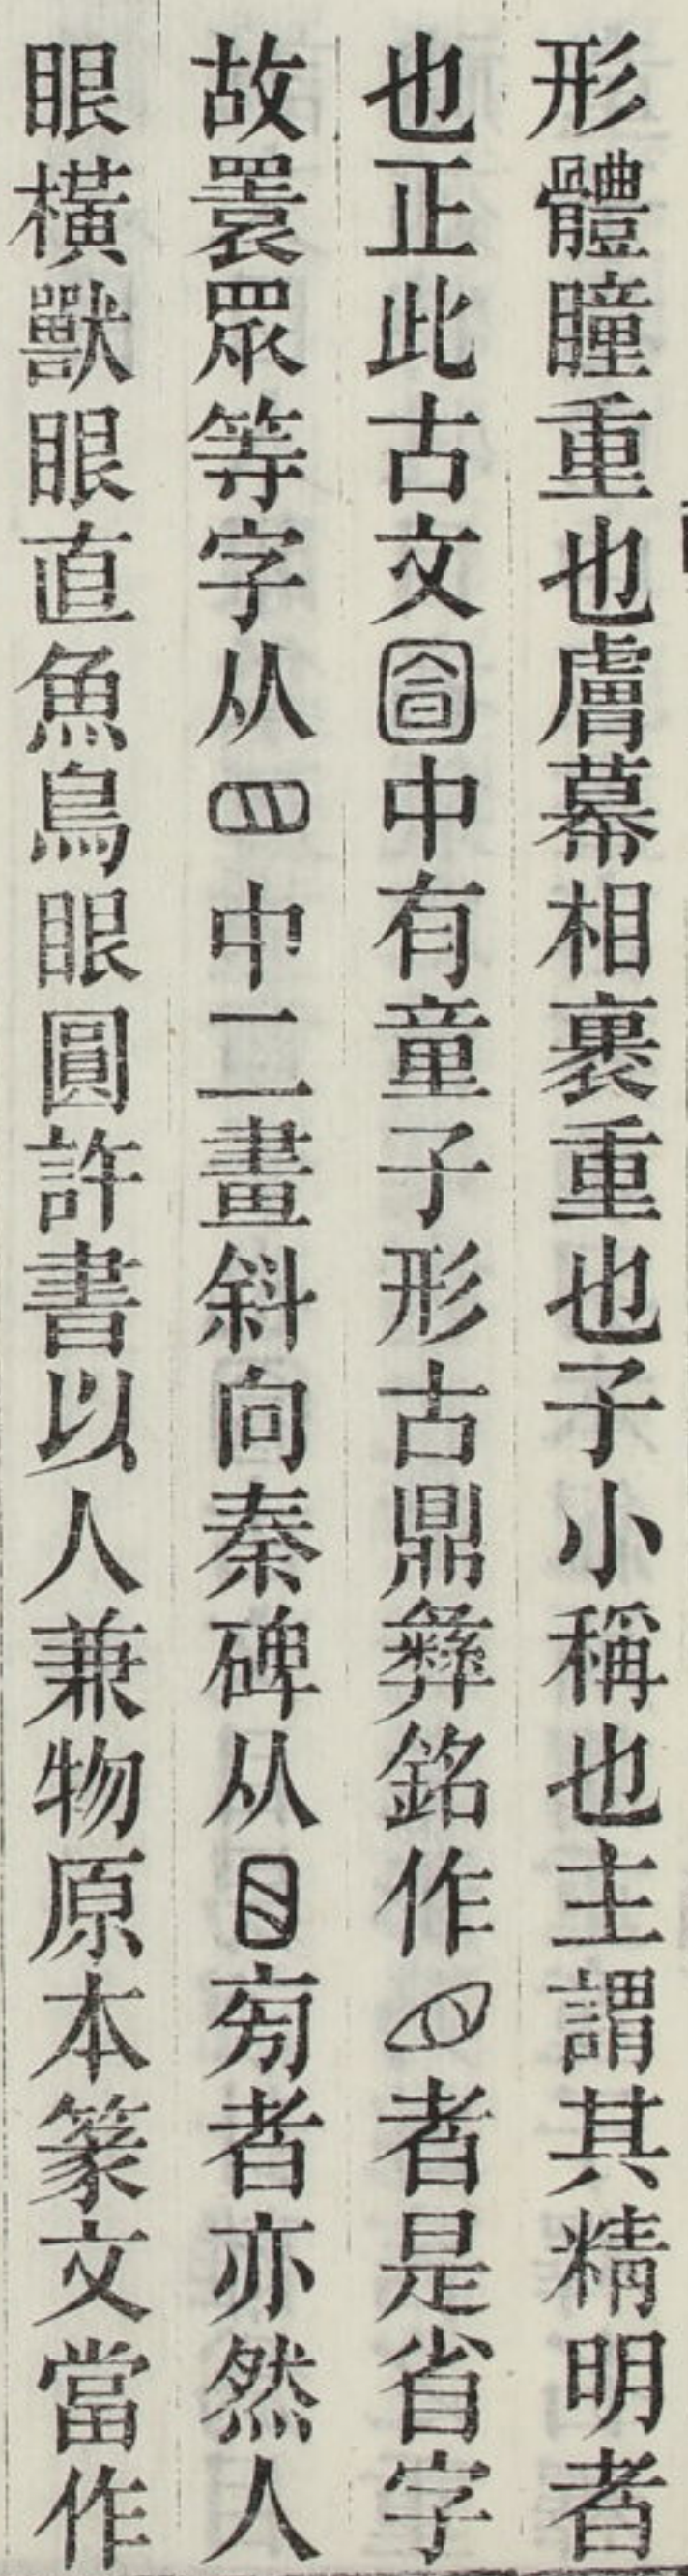 形體瞳重也膚幕相裹重也子小稱也主謂其精明者
也正此古文中有童子形古鼎彝銘作者是省字
故瞏眾等字从中二畫斜向秦碑从㫄者亦然人
眼橫獸眼直魚鳥眼圓許書以人兼物原本篆文當作